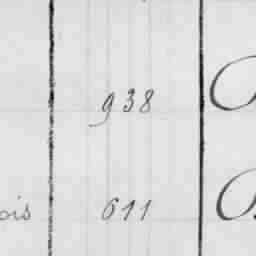 938
ois 611